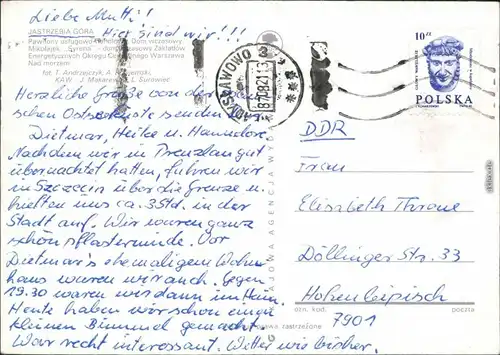 Liebe Mutti!
Hier sind wir!!!
JASTRZĘBIA GÓRA
Pawilony usługowo-handlowe. Dom wczasowy
Mikołajek. "Syrena" - dom wczasowy Zakładów
Energetycznych Okręgu Centralnego Warszawa
Nad morzem
fot. T. Andrzejczyk, A.
KAW J. Makarewicz, L. Surowiec
Herzliche Grüße von der
schen Ostseeküste senden
Dietmar, Heike u. Hannelore.
Nachdem wir in Prenzlau gut
übernachtet hatten, fuhren wir
in Szczecin über die Grenze u.
hielten uns ca. 3 Std. in der
Stadt auf. Wir waren ganz
schön pflastermüde. Vor
Dietmar's ehemaligem Wohn-
haus waren wir auch. Gegen
19.30 waren wir dann im Heim.
Heute haben wir schon einen
kleinen Bummel gemacht.
War recht interessant. Wetter wie bisher.
KRAJOWA AGENCJA WYDAWNICZA
WŁADYSŁAWOWO 3
10 zł
POLSKA
DDR
Frau
Elisabeth Throne
Döllinger Str. 33
Hohenleipisch
ozn. kod. poczta
7901
prawa zastrzeżone